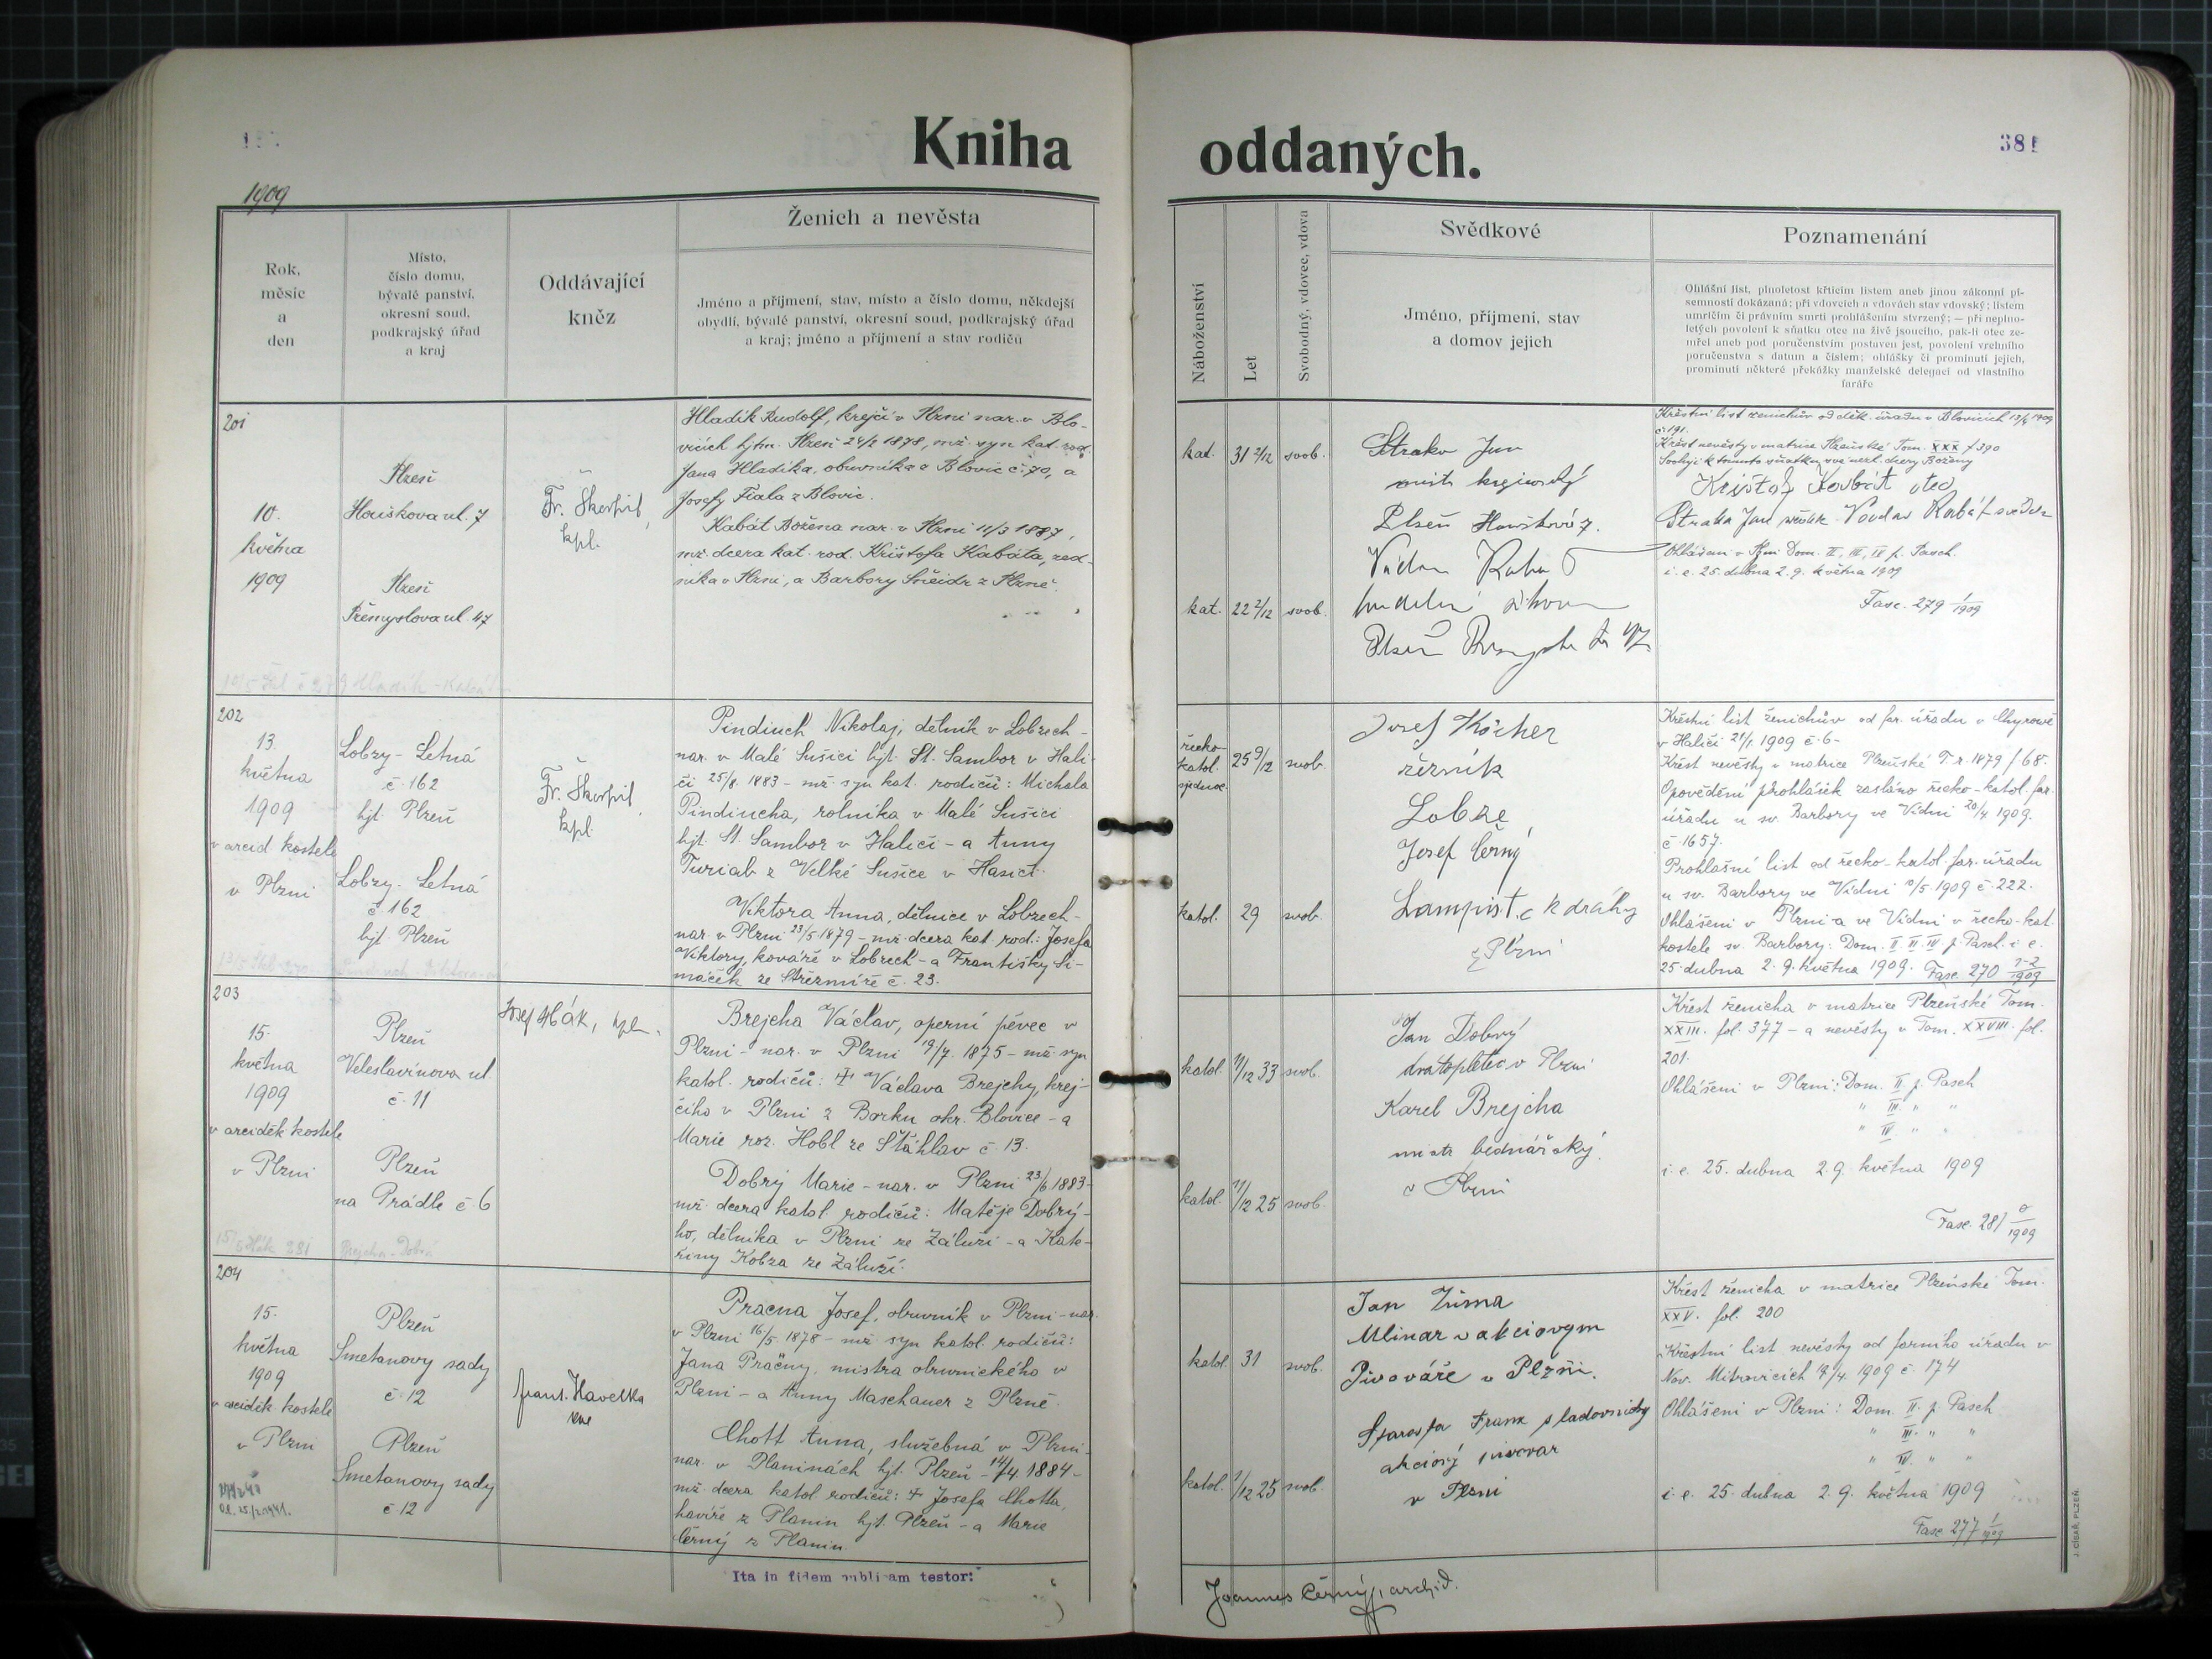 Kniha
oddaných.
381
1909
Rok,
měsíc
a
den
Místo,
číslo domu,
bývalé panství,
okresní soud,
podkrajský úřad
a kraj
Oddávající
kněz
Ženich a nevěsta
Jméno a příjmení, stav, místo a číslo domu, někdejší
obydlí, bývalé panství, okresní soud, podkrajský úřad
a kraj; jméno a příjmení a stav rodičů
Náboženství
Let
Svobodný, vdovec, vdova
Svědkové
Jméno, příjmení, stav
a domov jejich
Poznamenání
Ohlášní list, plnoletost křticím listem aneb jinou zákonní pí-
semností dokázaná; při vdovcích a vdovách stav vdovský; listem
umrlčím či právním smrti prohlášením stvrzený; — při neplno-
letých povolení k sňatku otce na živě jsoucího, pak-li otec ze-
mřel aneb pod poručenstvím postaven jest, povolení vrchního
poručenstva s datum a číslem; ohlášky či prominutí jejich,
prominutí některé překážky manželské delegací od vlastního
faráře
201
10.
května
1909
Plzeň
Houškova ul. 7
Plzeň
Přemyslova ul. 47
Fr. Škorpil,
kpl.
Hladík Rudolf, krejčí v Plzni nar. v Blo-
vicích hjtm. Plzeň 24/2 1878, mž. syn kat. rod.
Jana Hladíka, obuvníka z Blovic č. 70, a
Josefy Fiala z Blovic.
Kabát Božena nar. v Plzni 11/3 1887,
mž. dcera kat. rod. Krištofa Kabáta, zed-
níka v Plzni, a Barbory Šneidr z Plzně.
kat. 31 2/12 svob.
kat. 22 2/12 svob.
Straka Jan
mistr krejčovský
Plzeň Houšková 7.
Václav
Plzeň 47
Křestní list ženichův od děk. úřadu v Blovicích 12/4 1909
č. 191.
Křest nevěsty v matrice Plzeňské Tom. XXX f 390
Svoluji k tomuto sňatku své nezl. dcery Boženy
Krištof Kabát otec
Straka Jan svědek Václav Kabát svědek
Ohlášeni v Plzni Dom. II, III, IV p. Pasch.
i. e. 25. dubna 2. 9. května 1909
Fasc. 279 1/1909
202
13.
května
1909
v arcid. kostele
v Plzni
Lobzy - Letná
č. 162
hjt. Plzeň
Lobzy - Letná
č. 162
hjt. Plzeň
Fr. Škorpil,
kpl.
Pindiuch Nikolaj, dělník v Lobzech -
nar. v Malé Sušici hjt. St. Sambor v Hali-
či 25/8. 1883 - mž. syn kat. rodičů: Michala
Pindiucha, rolníka v Malé Sušici
hjt. St. Sambor v Haliči - a Anny
Turiab z Velké Sušice v Haliči.
Viktora Anna, dělnice v Lobzech -
nar. v Plzni 23/5 1879 - mž. dcera kat. rod.: Josefa
Viktory, kováře v Lobzech - a Františky Ši-
máček ze Střezmíře č. 23.
řecko-
katol.
sjednoc.
25 9/12 svob.
katol. 29 svob.
Josef Köcher
řézník
Lobze
Josef Černý
Lampist. c k dráhy
z Plzni
Křestní list ženichův od far. úřadu v Chyrowě
v Haliči 21/1. 1909 č. 6 -
Křest nevěsty v matrice Plzeňské T. r. 1879 f 68.
Opovědění prohlášek zasláno řecko-katol. far.
úřadu u sv. Barbory ve Vídni 20/4 1909.
č 1657.
Prohlašní list od řecko-katol. far. úřadu
u sv. Barbory ve Vídni 10/5 1909 č. 222.
Ohlášeni v Plzni a ve Vídni v řecko-kat.
kostele sv. Barbory: Dom. II. III. IV p. Pasch. i. e.
25. dubna 2. 9. května 1909. Fasc. 270 1-2/1909
203
15.
května
1909
v arciděk. kostele
v Plzni
Plzeň
Veleslavínova ul.
č. 11
Plzeň
na Prádle č. 6
Josef Hák, kpl.
Brejcha Václav, operní pěvec v
Plzni - nar. v Plzni 19/7. 1875 - mž. syn
katol. rodičů: † Václava Brejchy, krej-
čího v Plzni z Borku okr. Blovice - a
Marie roz. Hobl ze Šťáhlav č 13.
Dobrý Marie - nar. v Plzni 23/6 1883 -
mž. dcera katol. rodičů: Matěje Dobrý-
ho, dělníka v Plzni ze Záluží - a Kate-
řiny Kobza ze Záluží.
katol. 11/12 33 svob.
katol. 11/12 25 svob.
Jan Dobrý
dratopletec v Plzni
Karel Brejcha
mistr bednářský.
v Plzni
Křest ženicha v matrice Plzeňské Tom.
XXIII. fol. 377 - a nevěsty v Tom. XXVIII. fol.
201.
Ohlášeni v Plzni: Dom. II. p. Pasch
" III. " "
" IV " "
i. e. 25. dubna 2. 9. května 1909
Fasc. 281 0/1909
204
15.
května
1909
v arciděk. kostele
v Plzni
Plzeň
Smetanovy sady
č. 12
Plzeň
Smetanovy sady
č 12
frant. Havelka
Pracna Josef, obuvník v Plzni - nar.
v Plzni 16/5 1878 - mž. syn katol. rodičů:
Jana Pračny, mistra obuvnického v
Plzni - a Anny Maschauer z Plzně.
Chott Anna, služebná v Plzni
nar. v Planinách hjt. Plzeň - 14/4. 1884 -
mž. dcera katol. rodičů: † Josefa Chotta,
havíře z Planin hjt. Plzeň - a Marie
Černý z Planin.
katol. 31 svob.
katol. 1/12 25 svob.
Jan Zůma
Mlinar v akciovym
Pivováře v Plzňi.
Starosta Frank sladovnický
akciový pivovar
v Plzni
Křest ženicha v matrice Plzeňské Tom.
XXV. fol. 200
Křestní list nevěsty od farního úřadu v
Nov. Mitrovicích 14/4. 1909 č. 174
Ohlášeni v Plzni: Dom. II. p. Pasch
" III. " "
" IV. " "
i. e. 25. dubna 2. 9. května 1909
Fasc 277 1/1909
Ita in fidem publicam testor:
Joannes Černý, archid.
J. CÍBAŘ, PLZEŇ.